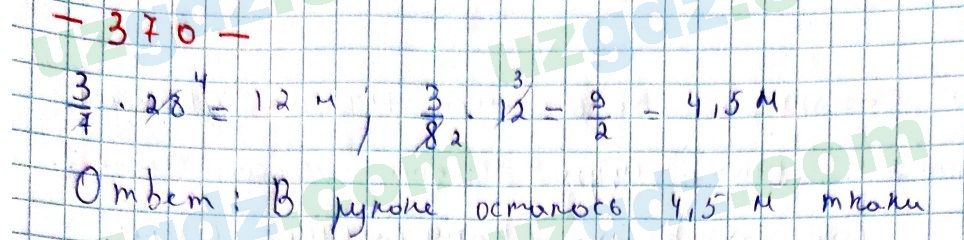 - 370 -
3/7 · 28 4 = 12 м ; 3/8 2 · 12 3 = 9/2 = 4,5 м
Ответ: В рулоне осталось 4,5 м ткани
uzgdz.com